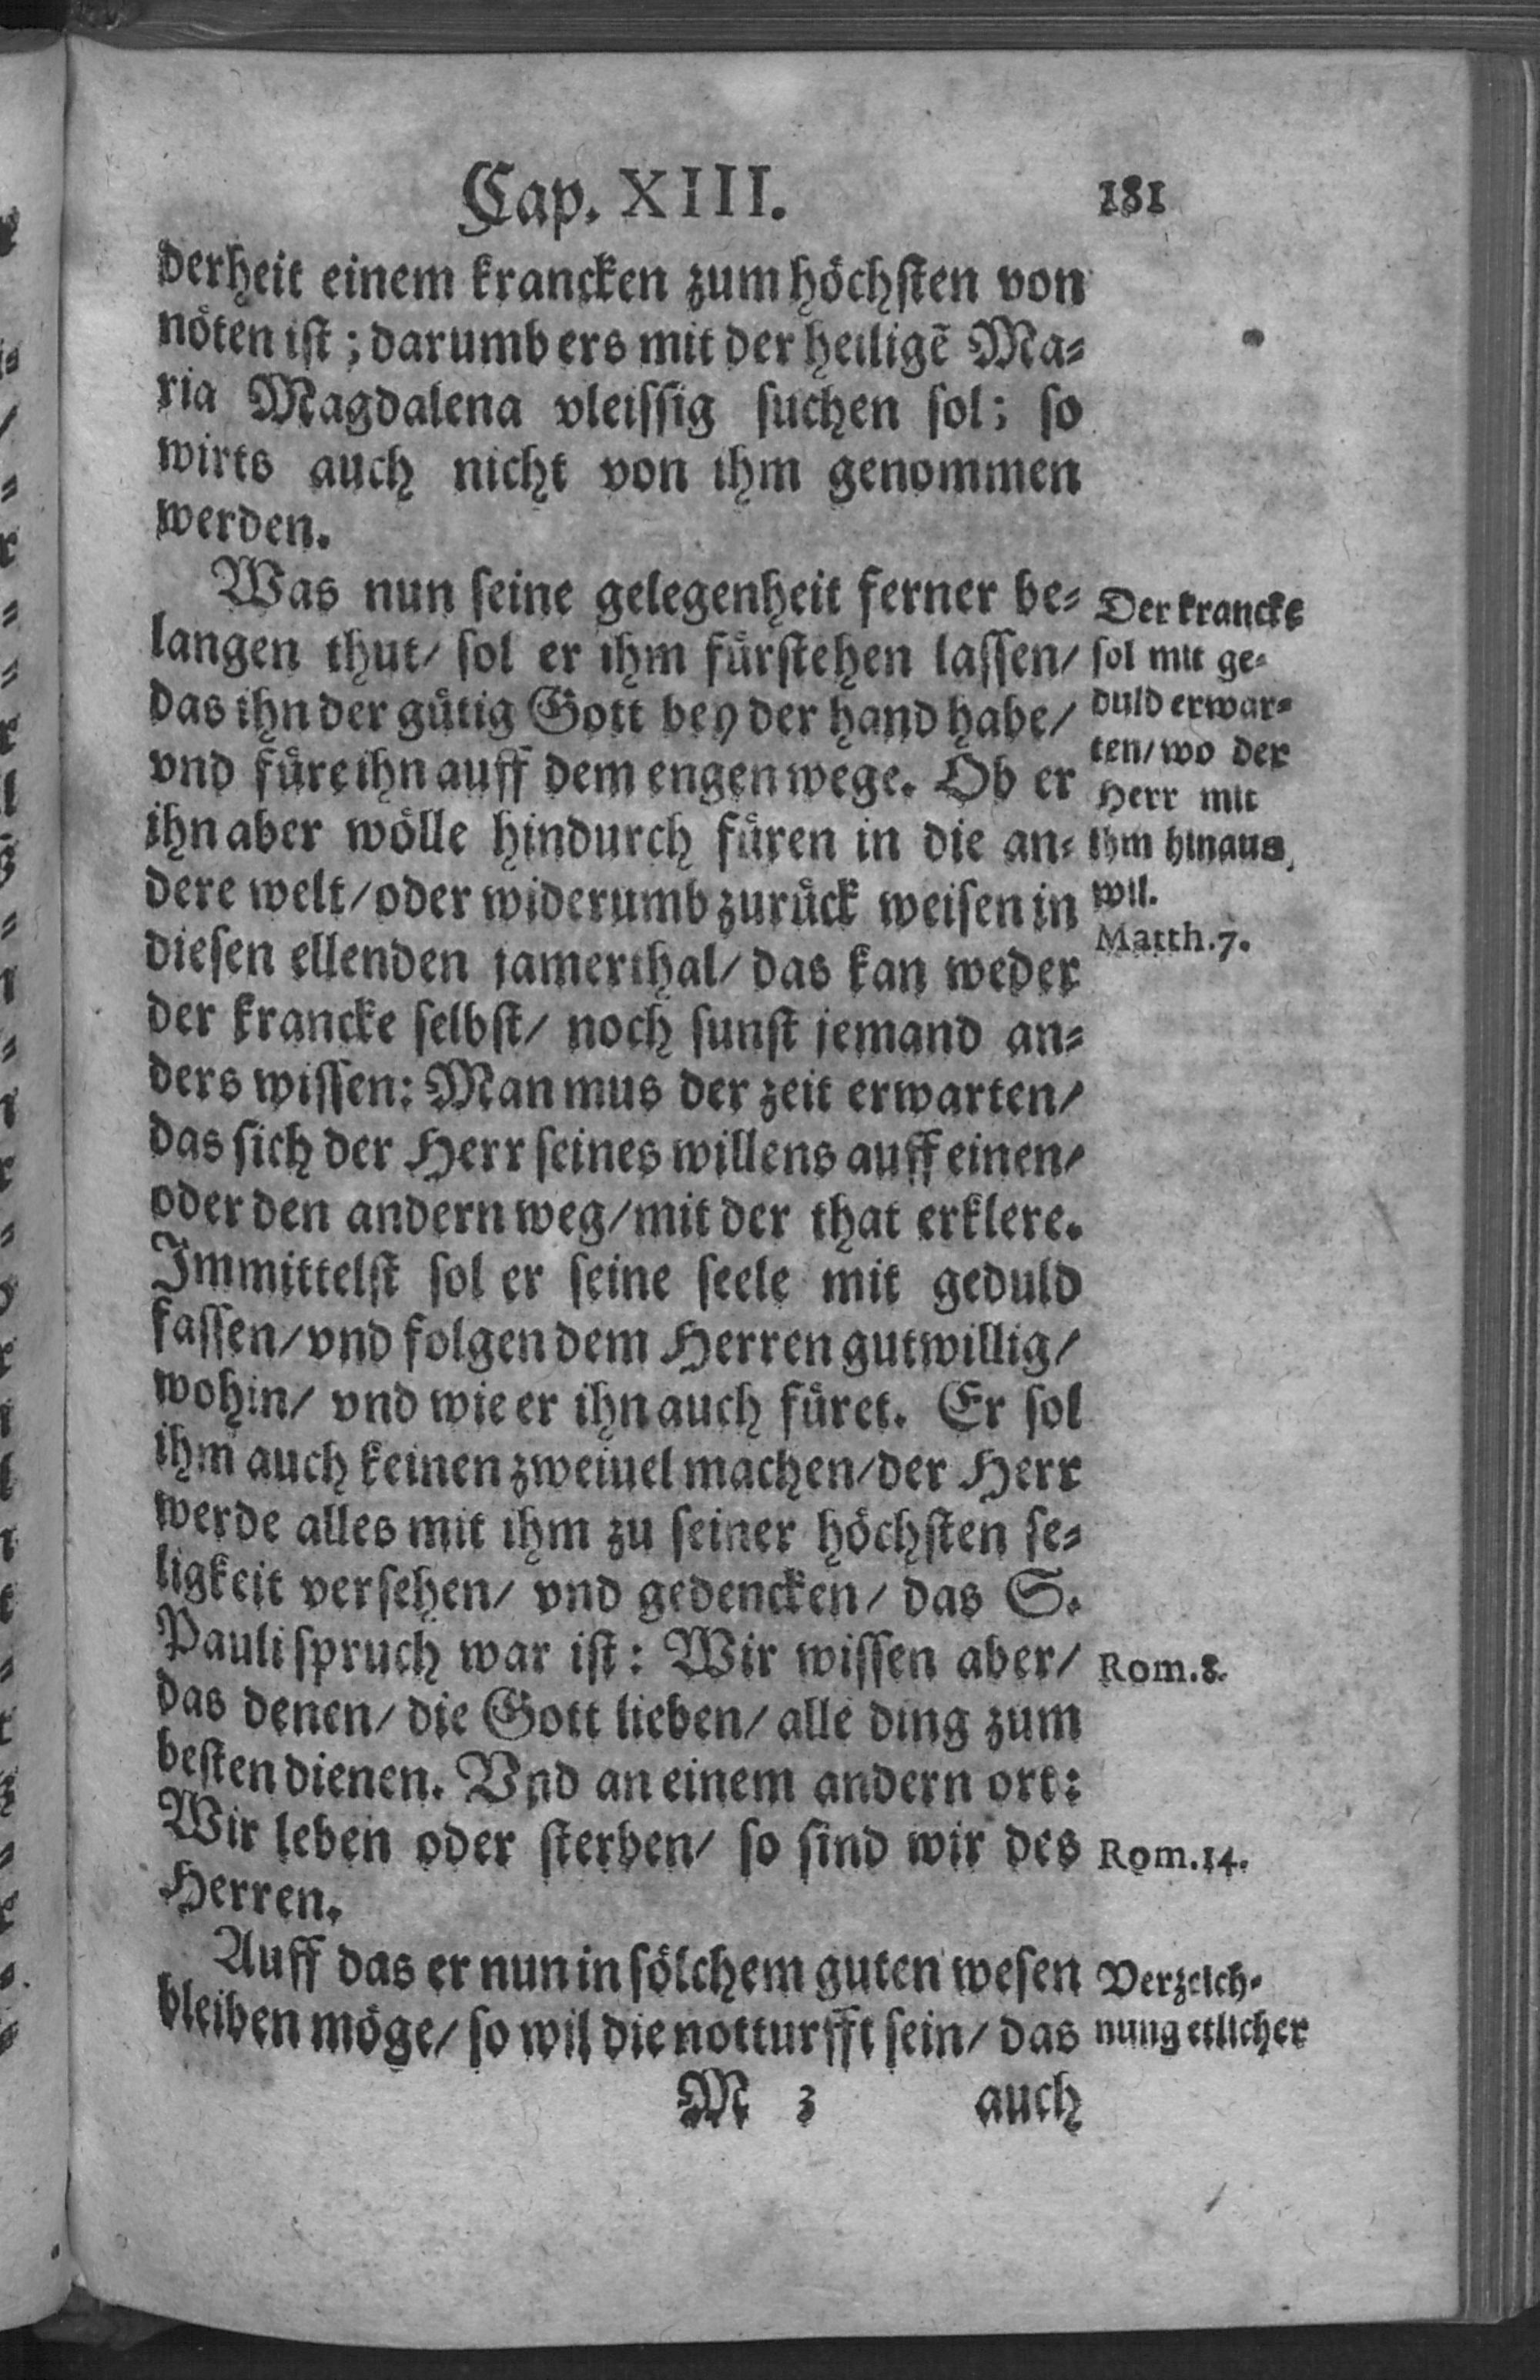 Cap. XIII. 181
derheit einem krancken zum höchsten von
nöten ist; darumb ers mit der heiligẽ Ma-
ria Magdalena vleissig suchen sol; so
wirts auch nicht von ihm genommen
werden.
Was nun seine gelegenheit ferner be-
langen thut/ sol er ihm fürstehen lassen/
das ihn der gütig Gott bey der hand habe/
vnd füre ihn auff dem engen wege. Ob er
ihn aber wölle hindurch füren in die an-
dere welt/ oder widerumb zurück weisen in
diesen ellenden jamerthal/ das kan weder
der krancke selbst/ noch sunst jemand an-
ders wissen: Man mus der zeit erwarten/
das sich der Herr seines willens auff einen/
oder den andern weg/ mit der that erklere.
Immittelst sol er seine seele mit geduld
fassen/ vnd folgen dem Herren gutwillig/
wohin/ vnd wie er ihn auch füret. Er sol
ihm auch keinen zweiuel machen/ der Herr
werde alles mit ihm zu seiner höchsten se-
ligkeit versehen/ vnd gedencken/ das S.
Pauli spruch war ist: Wir wissen aber/
das denen/ die Gott lieben/ alle ding zum
besten dienen. Vnd an einem andern ort:
Wir leben oder sterben/ so sind wir des
Herren.
Auff das er nun in sölchem guten wesen
bleiben möge/ so wil die notturfft sein/ das
M 3 auch
Der krancke
sol mit ge-
duld erwar-
ten/ wo der
Herr mit
ihm hinaus
wil.
Matth. 7.
Rom. 8.
Rom. 14.
Verzeich-
nung etlicher